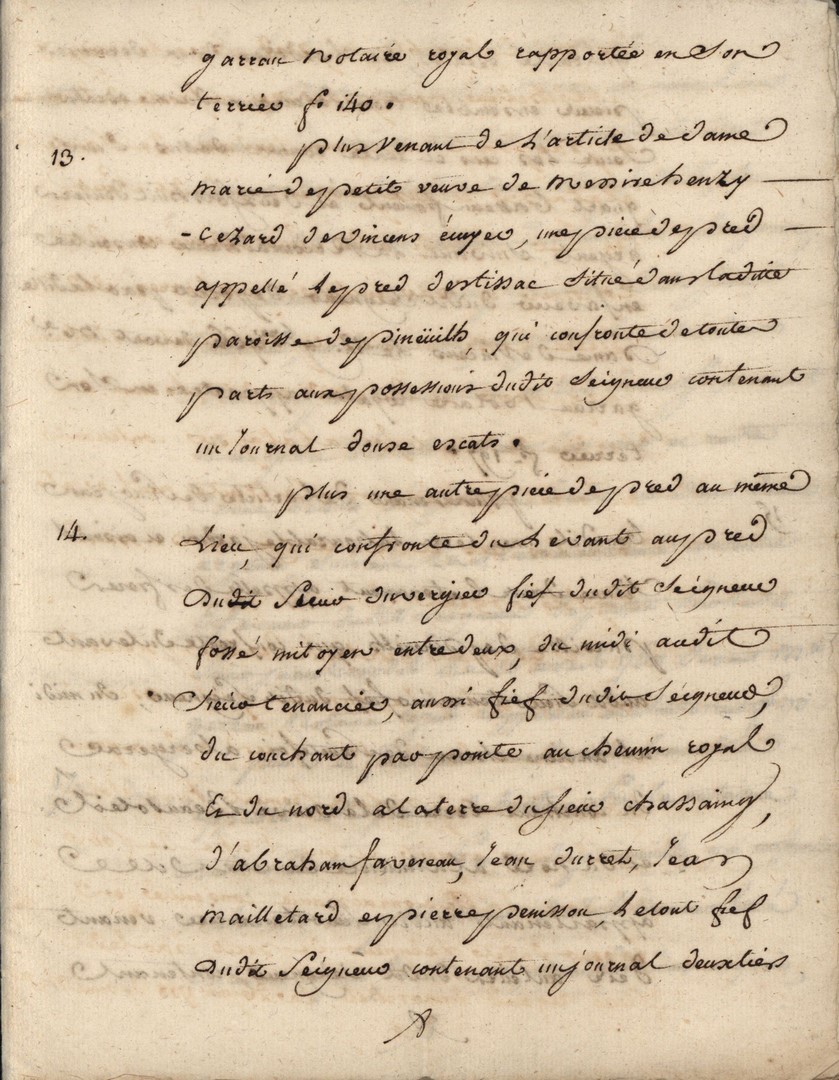 garrau Notaire royal rapportée en Son
terrier f° 140.
13.
plus venant de L'article de dame
marie de petit veuve de Messire henry
Cezard de vincens écuyer, une piéce de pred
appellé le pred d'estissac Situé dans ladite
paroisse de pineüilh, qui confronte de toutes
parts aux possessions dudit Seigneur contenant
un Journal douse escats.
plus une autre piéce de pred au même
14.
Lieu, qui confronte du Levant au pred
Dudit Sieur duvergier fief dudit Seigneur
fossé mitoyen entre deux, du midi audit
Sieur tenancier, aussi fief dudit Seigneur,
du couchant par pointe au chemin royal
Et du nord a la terre du sieur chassaing,
d'abraham favereau, Jean durret, Jean
Mailletard et pierre penisson, Le tout fief
Dudit Seigneur contenant un journal deux tiers